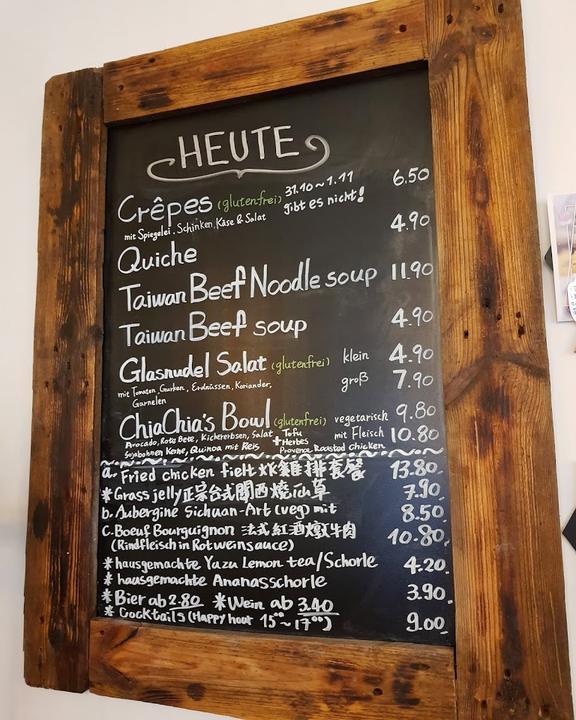 HEUTE
Crêpes (glutenfrei) 31.10 ~ 1.11 gibt es nicht! 6.50
mit Spiegelei, Schinken, Käse & Salat
Quiche 4.90
Taiwan Beef Noodle soup 11.90
Taiwan Beef soup 4.90
Glasnudel Salat (glutenfrei) klein 4.90
mit Tomaten, Gurken, Erdnüssen, Koriander, groß 7.90
Garnelen
ChiaChia's Bowl (glutenfrei) vegetarisch 9.80
Avocado, Rote Bete, Kichererbsen, Salat + Tofu +Herbes mit Fleisch 10.80
Sojabohnen Kerne, Quinoa mit Reis Provence Roasted chicken
a. Fried chicken fielt 炸雞排套餐 13.80.
* Grass jelly 正宗台式關西燒仙草 7.90.
b. Aubergine Sichuan-Art (veg) mit 8.50.
c. Boeuf Bourguignon 法式紅酒燉牛肉 10.80.
(Rindfleisch in Rotweinsauce)
* hausgemachte Yazu Lemon tea/Schorle 4.20.
* hausgemachte Ananasschorle 3.90.
* Bier ab 2.80 * Wein ab 3.40
* Cocktails (Happy hour 15°° ~ 17°°) 9.00.